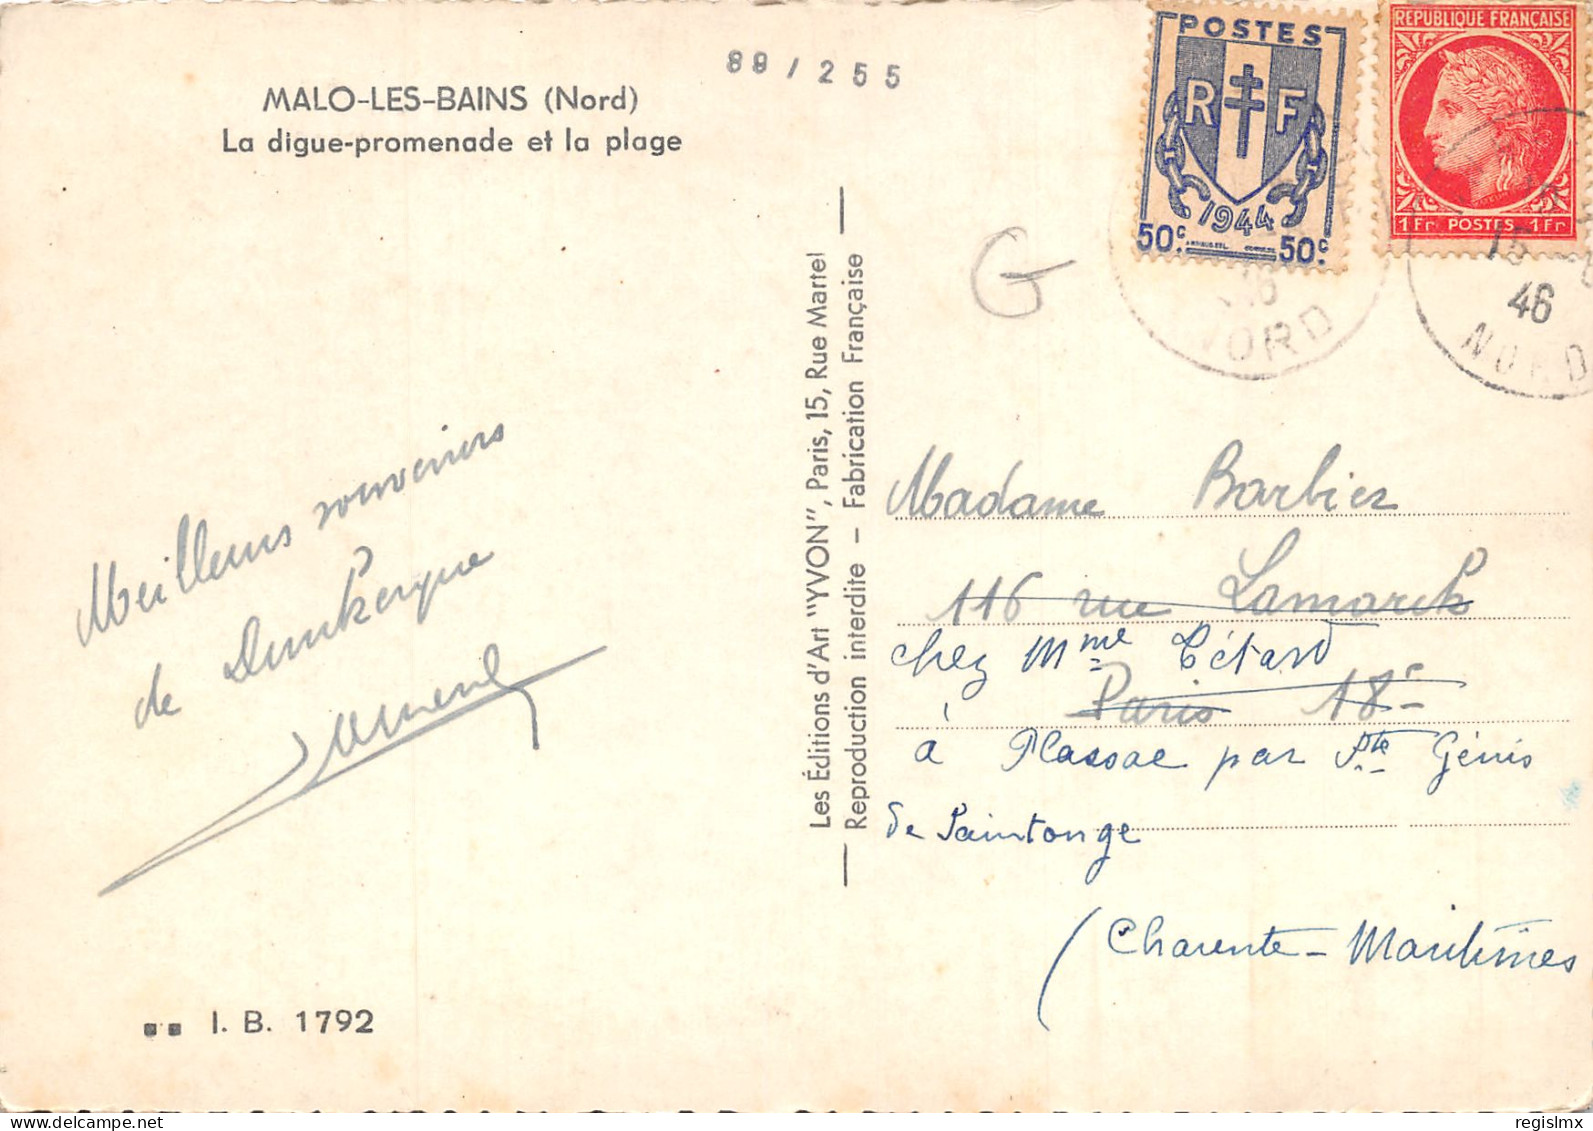 MALO-LES-BAINS (Nord)
La digue-promenade et la plage
89/255
POSTES
R F
1944
50c. 50c
REPUBLIQUE FRANÇAISE
1Fr POSTES 1Fr
46
NORD
15
46
NORD
G
Meilleurs souvenirs
de Dunkerque
Les Éditions d'Art "YVON", Paris, 15, Rue Martel
Reproduction interdite – Fabrication Française
Madame Barbier
116 rue Lamarck
chez Mme Tétard
Paris 18e
à Plassac par Ste Génis
de Saintonge
(Charente-Maritimes
I. B. 1792
delcampe.net
regislmx